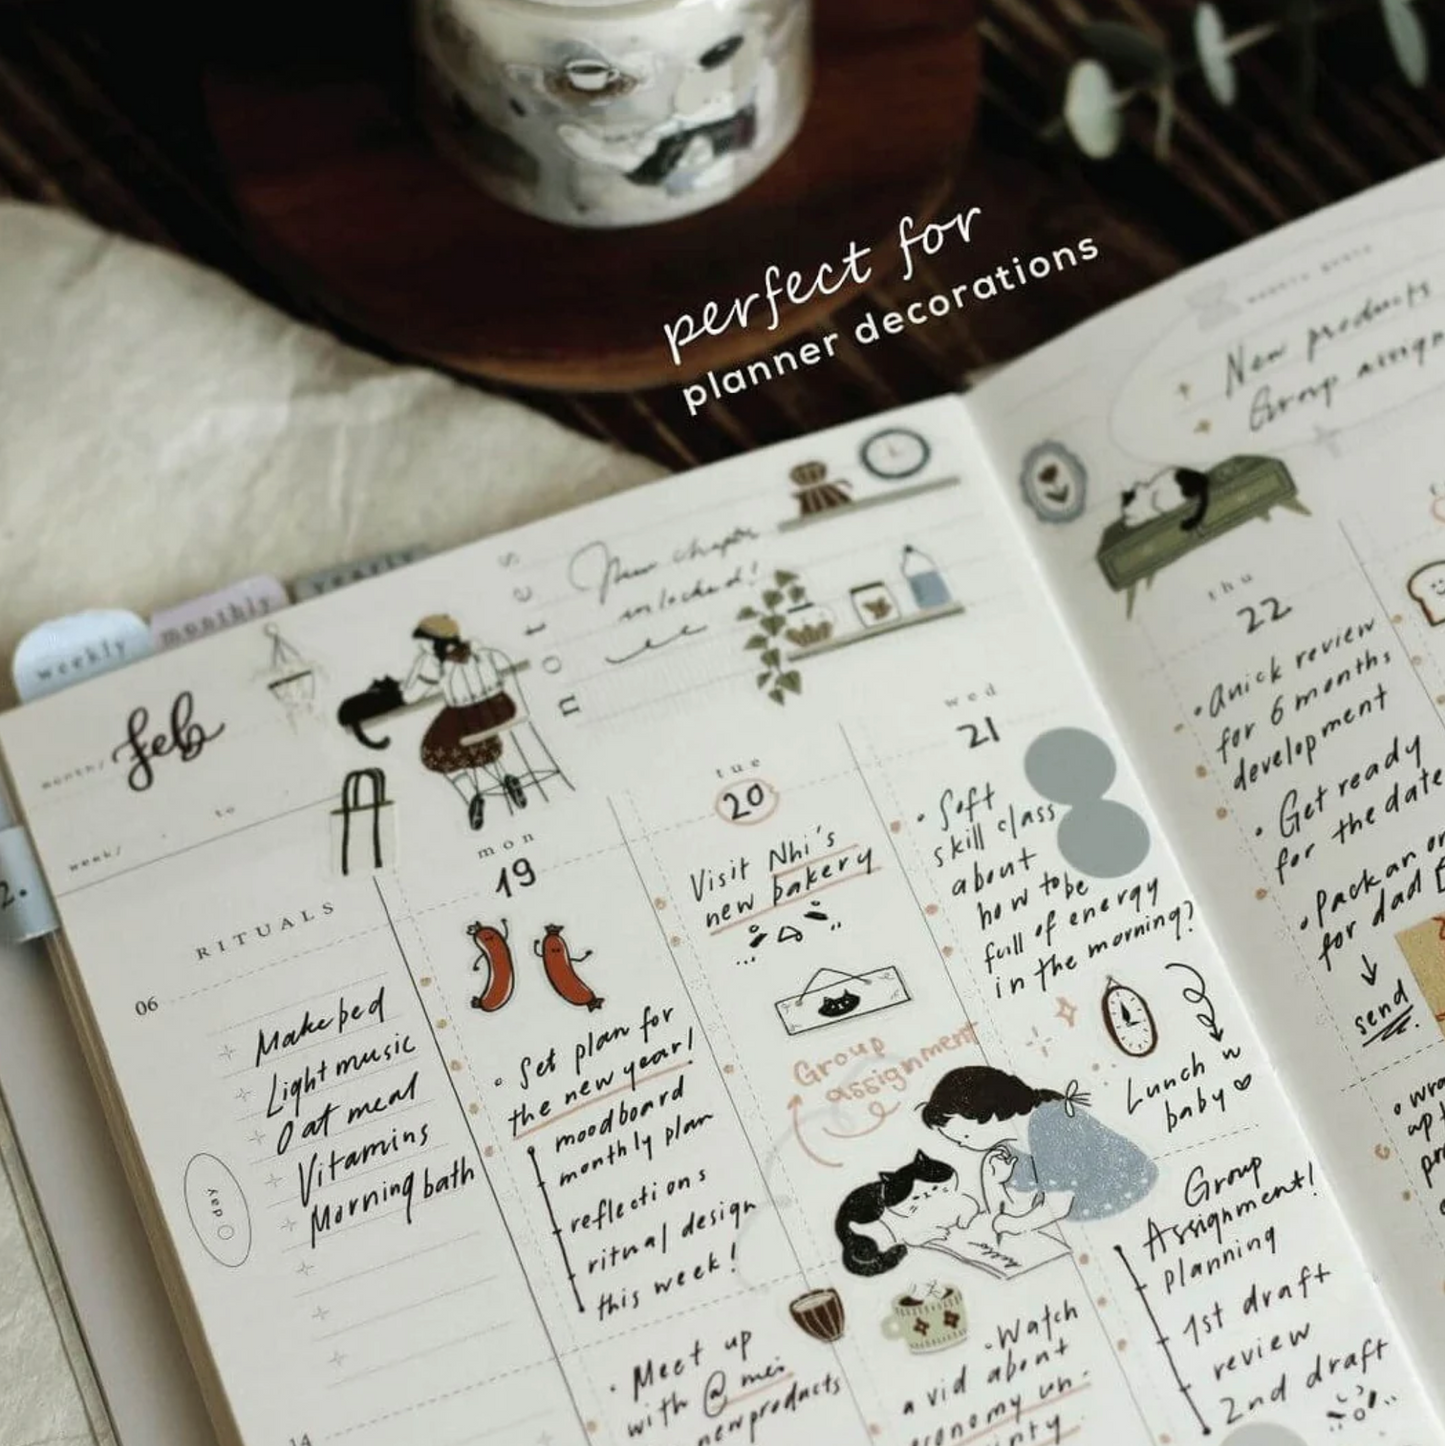 perfect for
planner decorations
weekly
monthly
yearly
feb
month/
to
week/
notes
New chapter
unlocked!
RITUALS
06
Make bed
Light music
Oat meal
Vitamins
Morning bath
day
14
mon
19
Set plan for
the new year!
moodboard
monthly plan
reflections
ritual design
this week!
Meet up
with @mei
new products
tue
20
Visit Nhi's
new bakery
Group
assignment
Watch
a vid about
wed
21
Soft
skill class
about
how to be
full of energy
in the morning?
Lunch w
baby
Group
Assignment!
planning
1st draft
review
2nd draft
New products
Group
thu
22
Quick review
for 6 months
development
Get ready
for the date
Pack an
for dad
send
2.